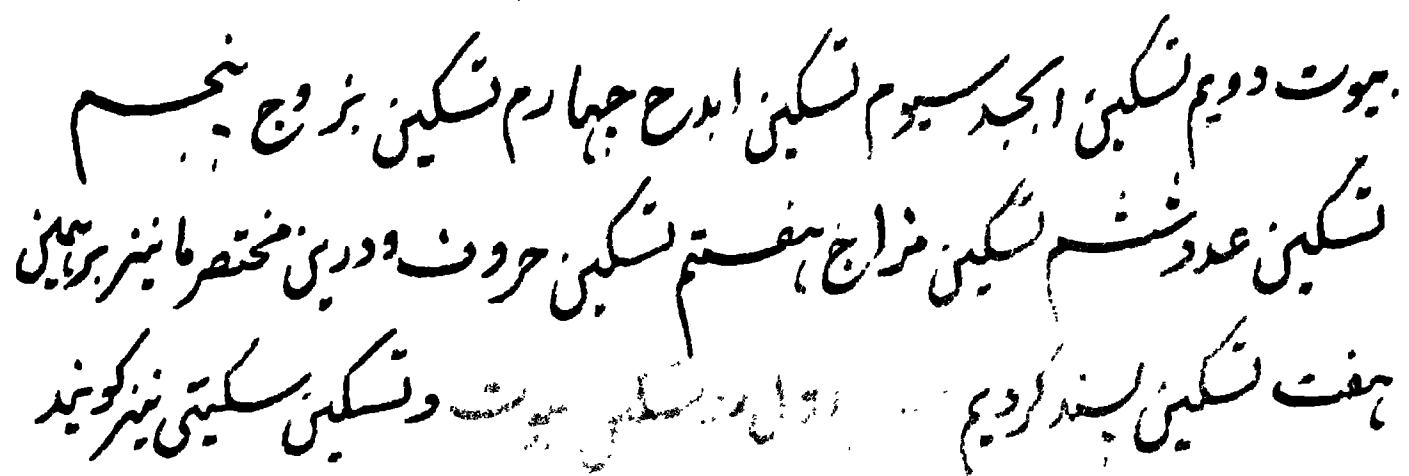 بیوت دویم تسکین ابجد سیوم تسکین ابدح چهارم تسکین بزوج پنجم
تسکین عدد ششم تسکین مزاج هفتم تسکین حروف و درین مختصر ما نیز بر همین
هفت تسکین پسند کردیم اول در تسکین بیوت و تسکین سکیتی نیز کویند